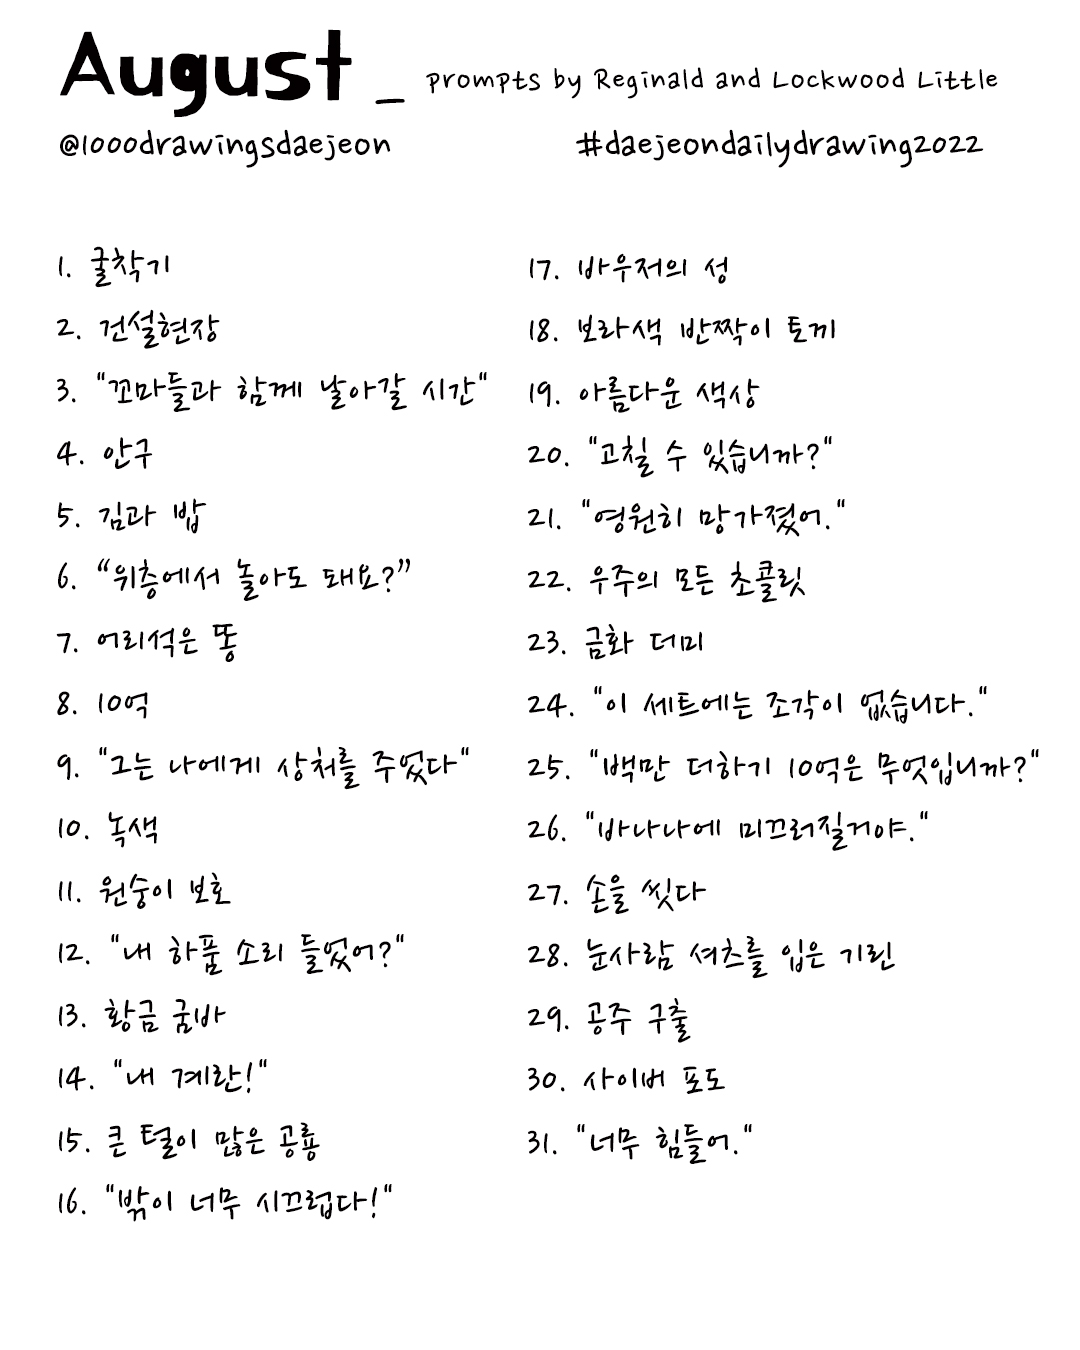 August _ prompts by Reginald and Lockwood Little
@1000drawingsdaejeon #daejeondailydrawing2022
1. 굴착기
2. 건설현장
3. "꼬마들과 함께 날아갈 시간"
4. 안구
5. 김과 밥
6. “위층에서 놀아도 돼요?”
7. 어리석은 똥
8. 10억
9. "그는 나에게 상처를 주었다"
10. 녹색
11. 원숭이 보호
12. "내 하품 소리 들었어?"
13. 황금 굼바
14. "내 계란!"
15. 큰 털이 많은 공룡
16. "밖이 너무 시끄럽다!"
17. 바우저의 성
18. 보라색 반짝이 토끼
19. 아름다운 색상
20. "고칠 수 있습니까?"
21. "영원히 망가졌어."
22. 우주의 모든 초콜릿
23. 금화 더미
24. "이 세트에는 조각이 없습니다."
25. "백만 더하기 10억은 무엇입니까?"
26. "바나나에 미끄러질거야."
27. 손을 씻다
28. 눈사람 셔츠를 입은 기린
29. 공주 구출
30. 사이버 포도
31. "너무 힘들어."